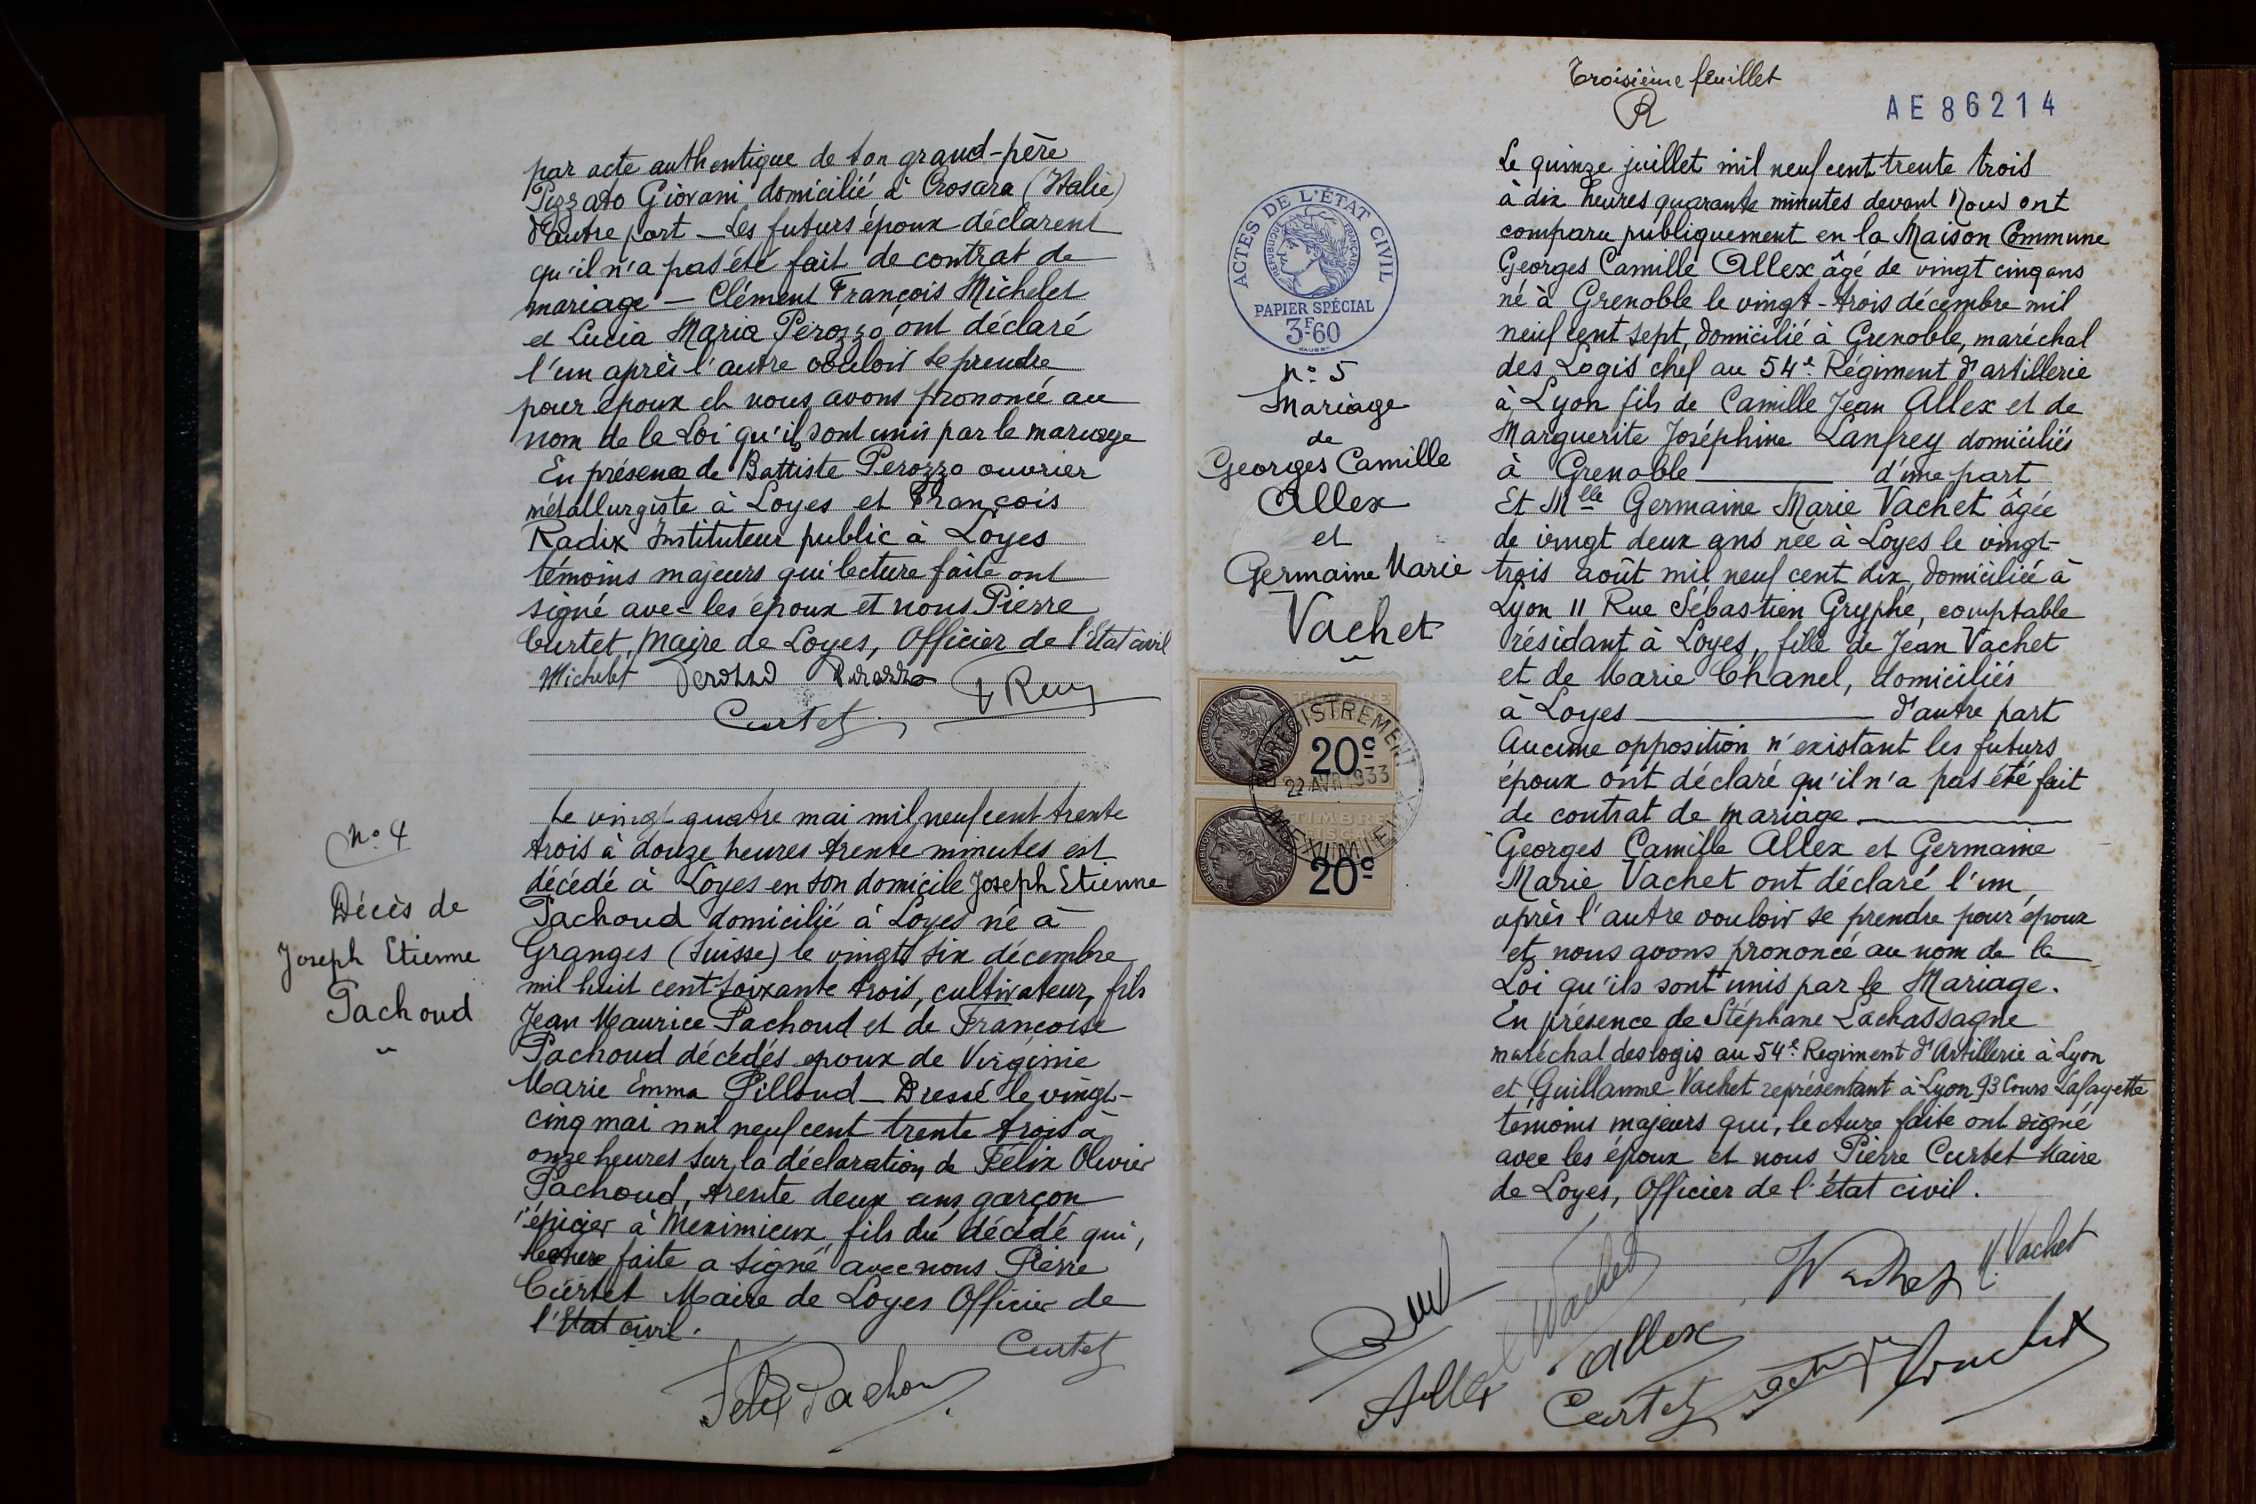 par acte authentique de son grand-père
Pizzato Giovani domicilié à Crosara (Italie)
d'autre part - Les futurs époux déclarent
qu'il n'a pas été fait de contrat de
mariage - Clément François Michelet
et Lucia Maria Perozzo ont déclaré
l'un après l'autre vouloir se prendre
pour époux et nous avons prononcé au
nom de la Loi qu'ils sont unis par le mariage
En présence de Battiste Perozzo ouvrier
métallurgiste à Loyes et François
Radix Instituteur public à Loyes
témoins majeurs qui lecture faite ont
signé avec les époux et nous Pierre
Curtet, Maire de Loyes, Officier de l'Etat civil
Michelet Perozzo Perozzo
Curtet
N° 4
Décès de
Joseph Etienne
Pachoud
Le vingt-quatre mai mil neuf cent trente
trois à douze heures trente minutes est
décédé à Loyes en son domicile Joseph Etienne
Pachoud domicilié à Loyes né à
Granges (Suisse) le vingt six décembre
mil huit cent soixante trois, cultivateur, fils
Jean Maurice Pachoud et de Françoise
Pachoud décédés époux de Virginie
Marie Emma Pilloud - Dressé le vingt-
cinq mai mil neuf cent trente trois à
onze heures sur la déclaration de Félix Olivier
Pachoud, trente deux ans garçon
épicier à Meximieux, fils du décédé qui,
lecture faite a signé avec nous Pierre
Curtet Maire de Loyes Officier de
l'Etat civil.
Curtet
Felix Pachoud
Troisième feuillet
R
AE 86214
ACTES DE L'ÉTAT CIVIL
RÉPUBLIQUE FRANÇAISE
PAPIER SPÉCIAL
3F60
N° 5
Mariage
de
Georges Camille
Allex
et
Germaine Marie
Vachet
TIMBRE
FISCAL
20c
TIMBRE
FISCAL
20c
ENREGISTREMENT
22 AVR 1933
MEXIMIEUX
Le quinze juillet mil neuf cent trente trois
à dix heures quarante minutes devant Nous ont
comparu publiquement en la Maison Commune
Georges Camille Allex âgé de vingt cinq ans
né à Grenoble le vingt-trois décembre mil
neuf cent sept, domicilié à Grenoble, maréchal
des Logis chef au 54e Régiment d'artillerie
à Lyon fils de Camille Jean Allex et de
Marguerite Joséphine Lanfrey domiciliés
à Grenoble d'une part
Et Mlle Germaine Marie Vachet âgée
de vingt deux ans née à Loyes le vingt-
trois août mil neuf cent dix, domiciliée à
Lyon 11 Rue Sébastien Gryphe, comptable
résidant à Loyes, fille de Jean Vachet
et de Marie Chanel, domiciliés
à Loyes d'autre part
Aucune opposition n'existant les futurs
époux ont déclaré qu'il n'a pas été fait
de contrat de mariage
Georges Camille Allex et Germaine
Marie Vachet ont déclaré l'un
après l'autre vouloir se prendre pour époux
et nous avons prononcé au nom de la
Loi qu'ils sont unis par le Mariage.
En présence de Stéphane Lachassagne
maréchal des logis au 54e Régiment d'Artillerie à Lyon
et Guillaume Vachet représentant à Lyon 93 Cours Lafayette
témoins majeurs qui, lecture faite ont signé
avec les époux et nous Pierre Curtet Maire
de Loyes, Officier de l'état civil.
Vachet Vachet Vachet
Allex Allex
Curtet